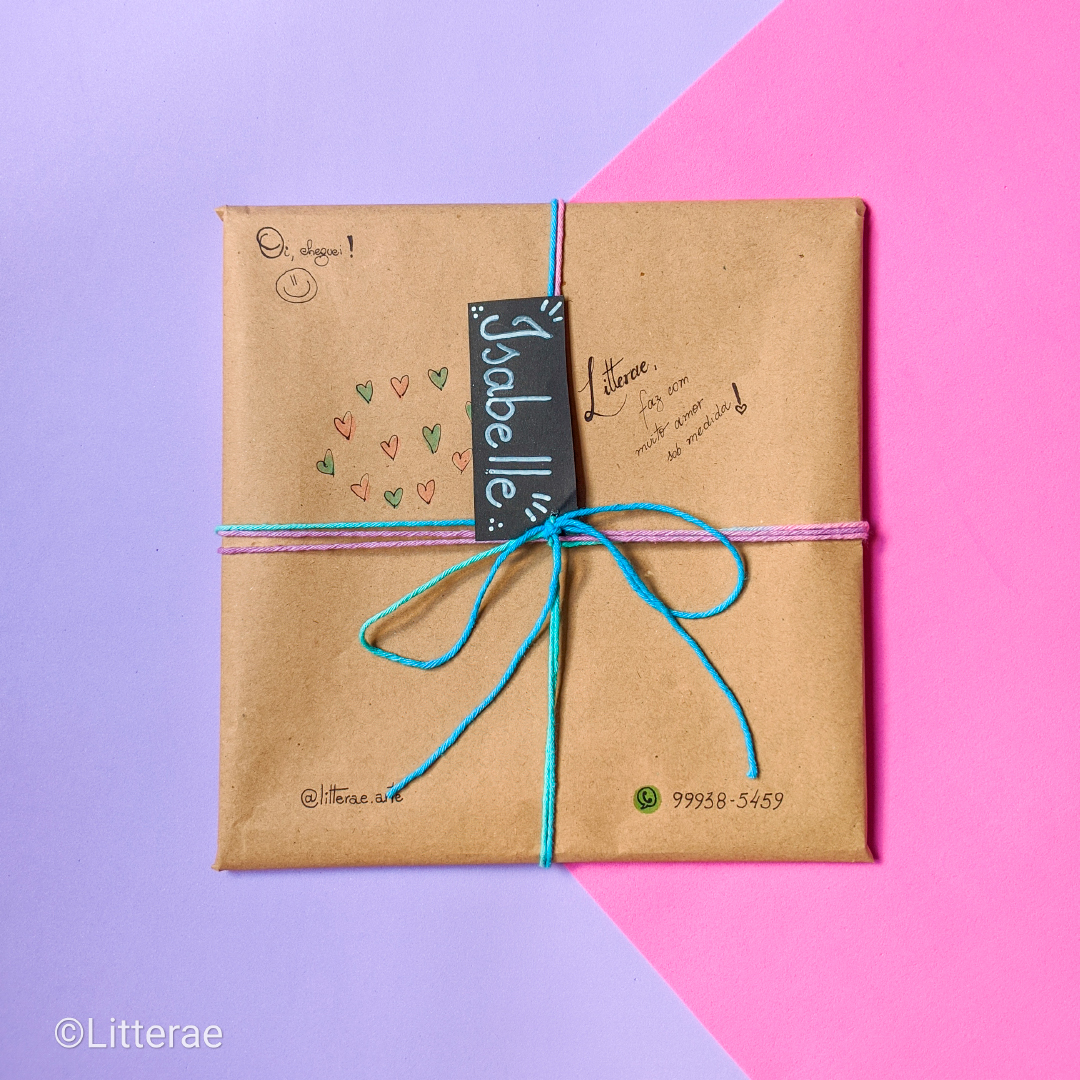 Oi, cheguei!
Isabelle
Litterae,
faz com
muito amor
sob medida!
@litterae.arte
99938-5459
©Litterae